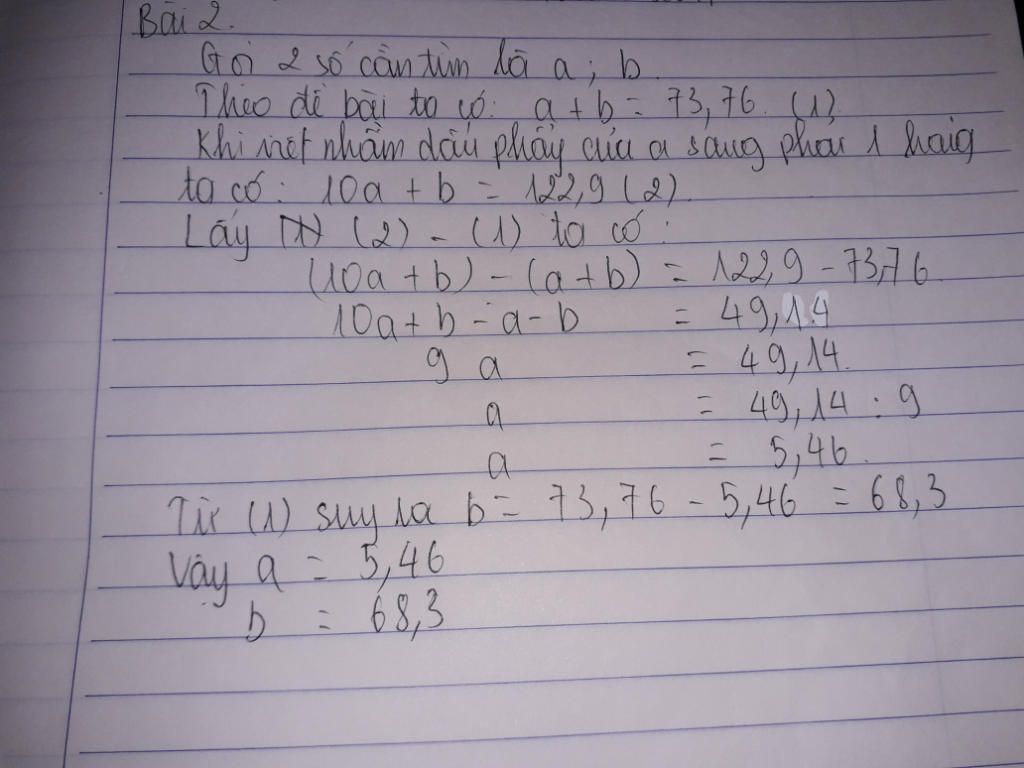 Bài 2.
Gọi 2 số cần tìm là a; b.
Theo đề bài ta có: a + b = 73,76. (1).
Khi viết nhầm dấu phẩy của a sang phải 1 hàng
ta có: 10a + b = 122,9 (2).
Lấy (2) - (1) ta có:
(10a + b) - (a + b) = 122,9 - 73,76.
10a + b - a - b = 49,14
9 a = 49,14.
a = 49,14 : 9
a = 5,46.
Từ (1) suy ra b = 73,76 - 5,46 = 68,3
Vậy a = 5,46
b = 68,3